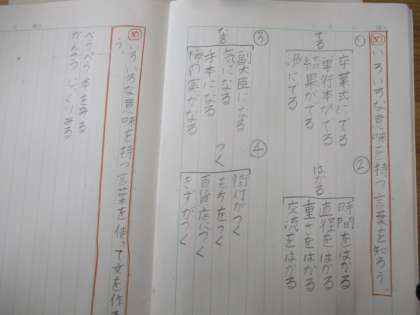 いろいろな意味を持つ言葉を知ろう
①
でる
卒業式にでる
単行本がでる
結果がでる
にでる
②
はかる
時間をはかる
直径をはかる
重さをはかる
交流をはかる
③
なる
副大臣になる
気になる
手本になる
がなる
④
つく
街灯がつく
もちをつく
百貨店につく
きずがつく
いろいろな意味を持つ言葉を使って文を作ろ
う。